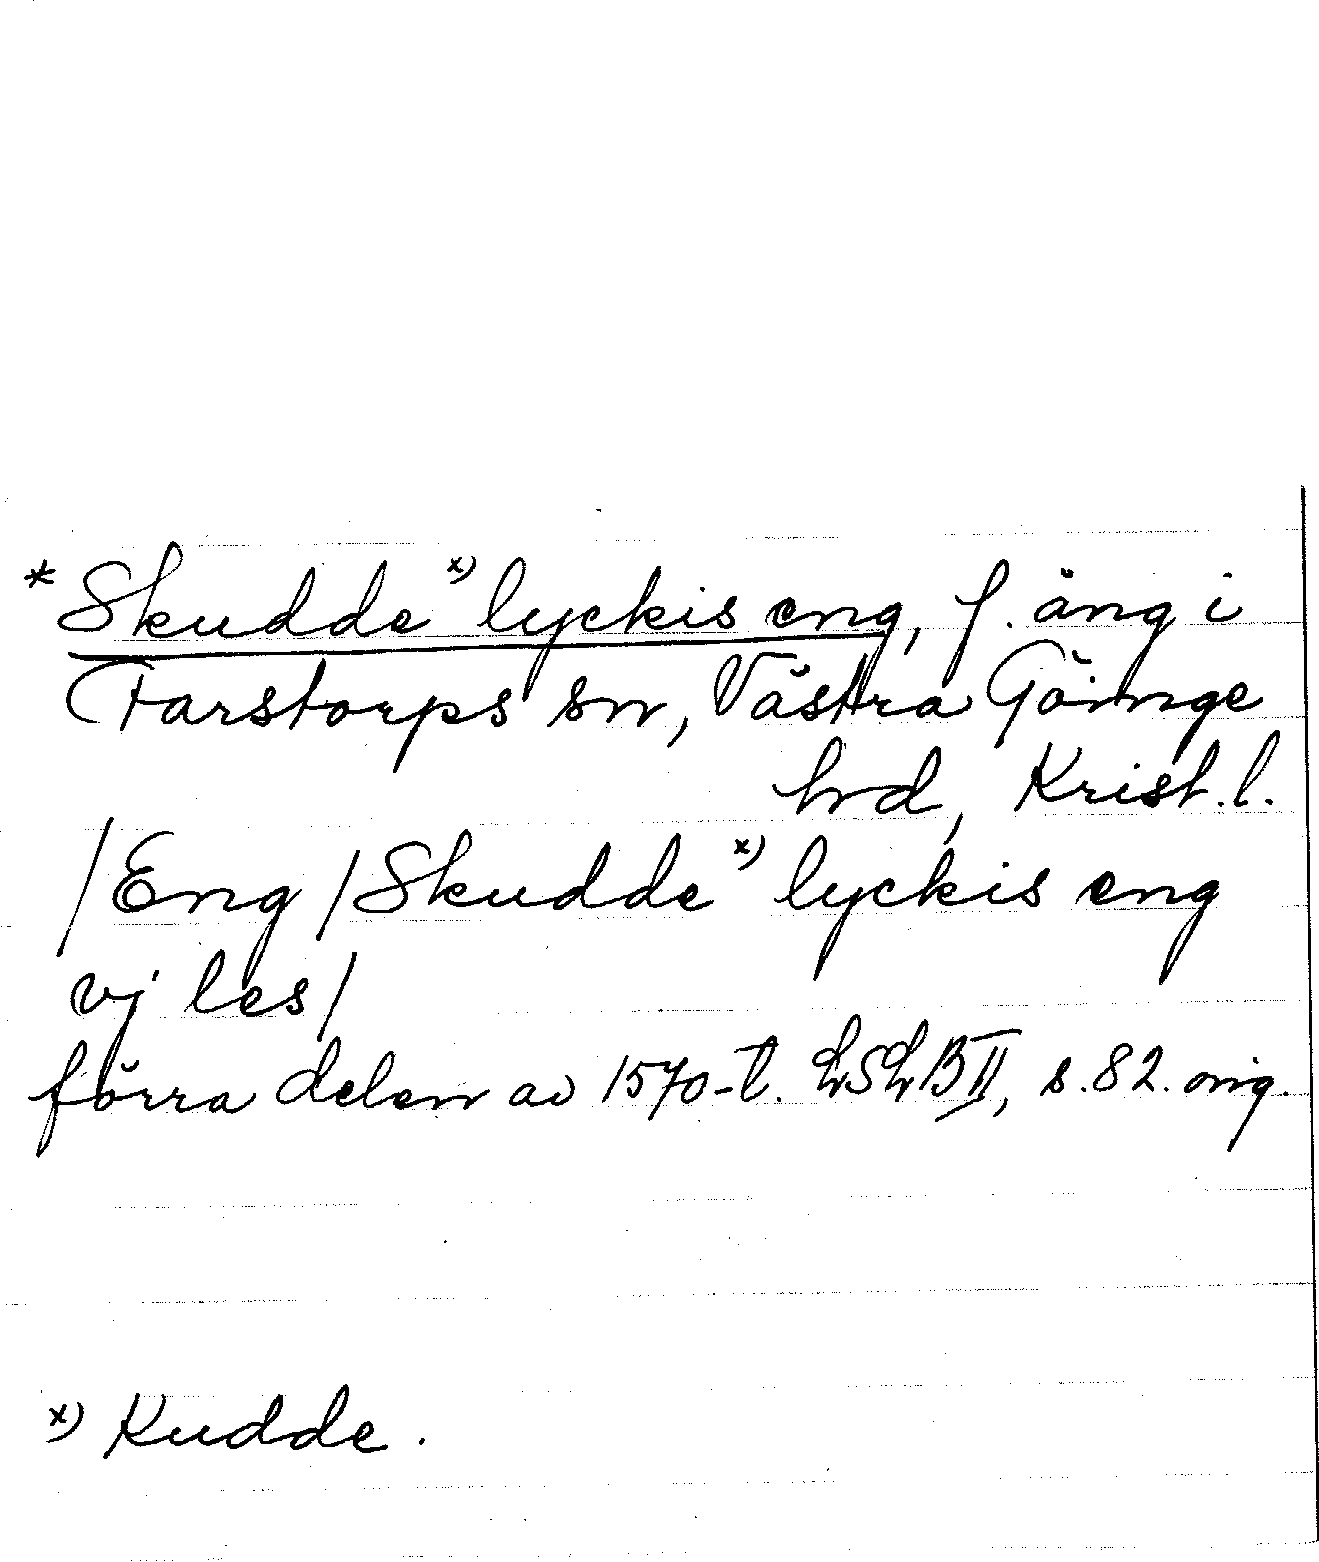 *Skudde x) lyckis eng, f. äng i
Farstorps sn, Västra Göinge
hrd, Krist.l.
/Eng /Skudde x) lyckis eng
vj les/
förra delen av 1570-t. LSLB II, s.82. orig.
x) Kudde.